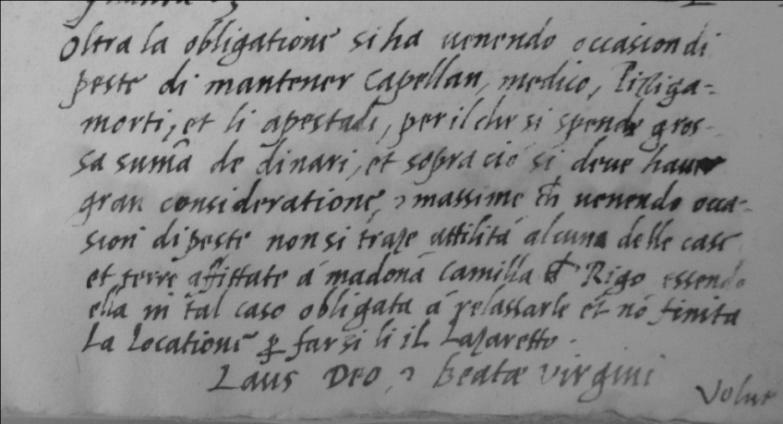 Oltra la obligatione si ha uenendo occasion di
peste di mantener Capellan, medico, Piziga-
morti, et li apestadi, per il che si spende gros-
sa sumā de dinari, et sopra ciò si deue hauer
gran consideratione, massime uenendo occa-
sion di peste non si traze utilità alcuna delle case
et terre affittate á madonā Camilla Rigo essendo
ella in tal caso obligata á relassarle et nō finita
La Locatione far si li iL Lazaretto.
Laus Deo, Beatæ Virgini
Volue